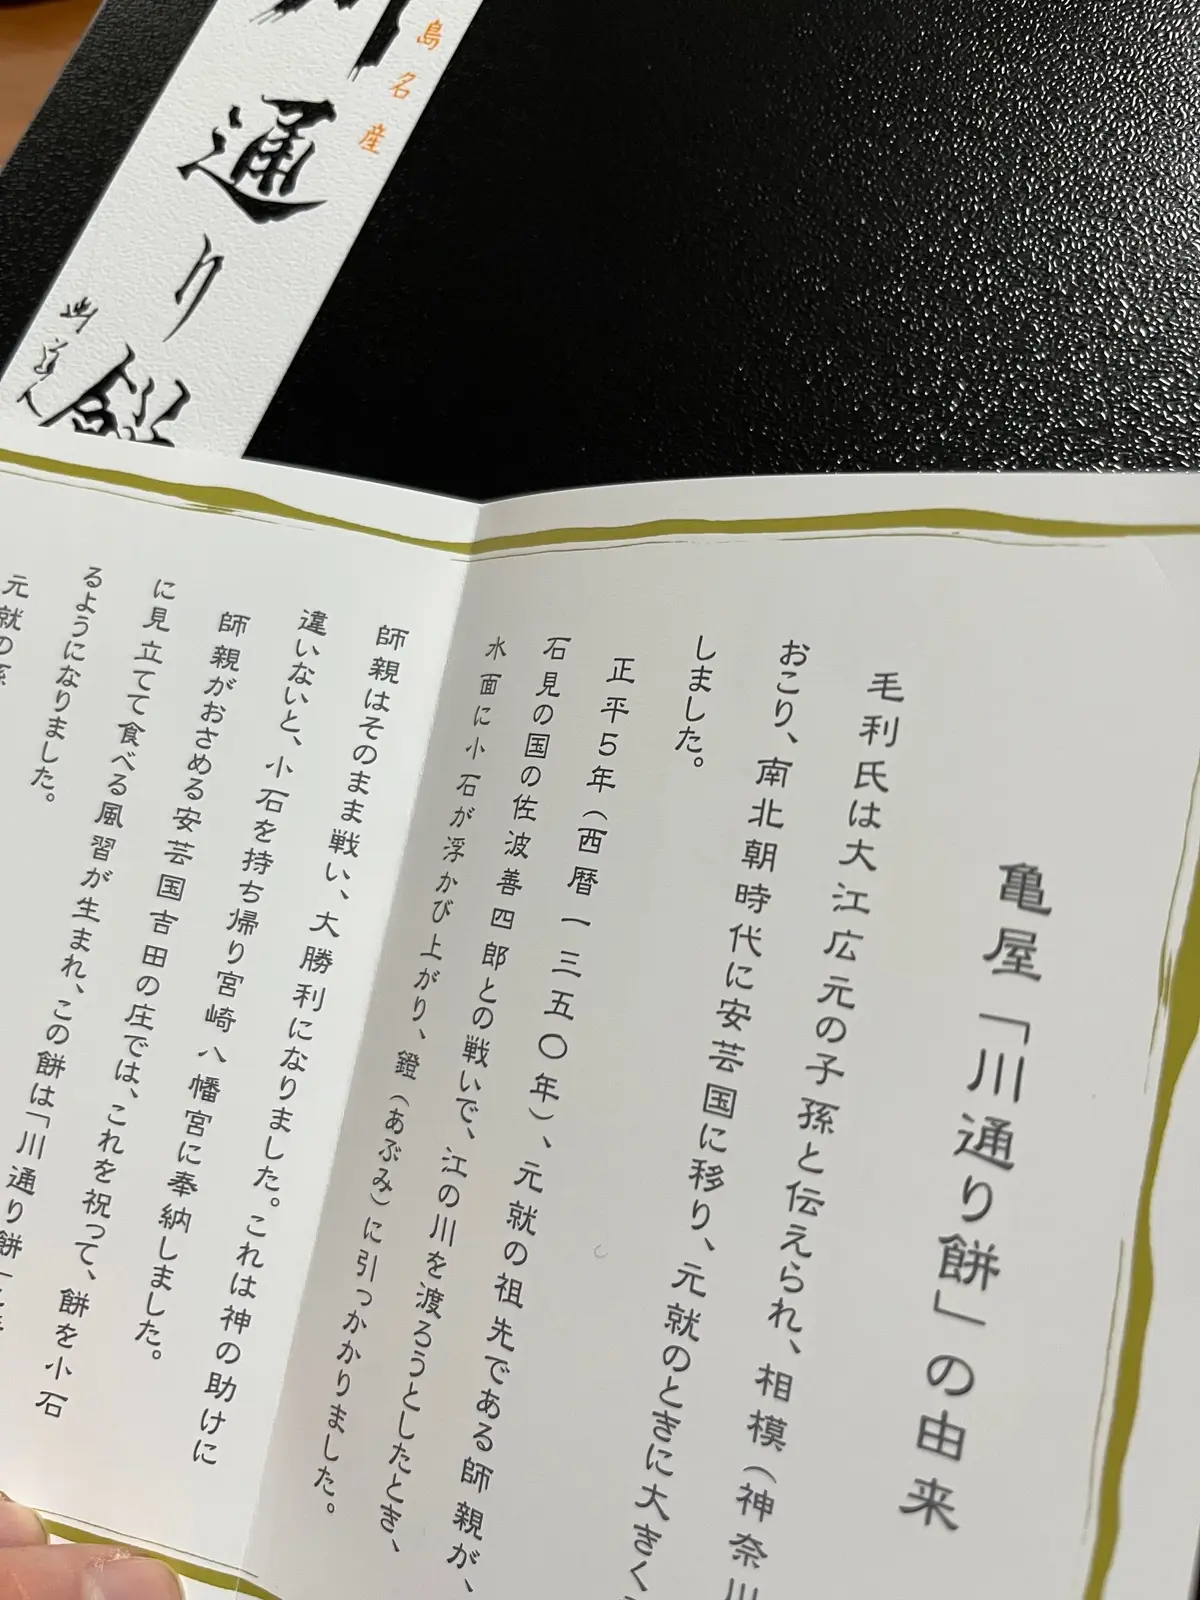 島名産
川通り餅
亀屋「川通り餅」の由来
毛利氏は大江広元の子孫と伝えられ、相模(神奈川
おこり、南北朝時代に安芸国に移り、元就のときに大きく
しました。
正平5年(西暦一三五〇年)、元就の祖先である師親が、
石見の国の佐波善四郎との戦いで、江の川を渡ろうとしたとき、
水面に小石が浮かび上がり、鐙(あぶみ)に引っかかりました。
師親はそのまま戦い、大勝利になりました。これは神の助けに
違いないと、小石を持ち帰り宮崎八幡宮に奉納しました。
師親がおさめる安芸国吉田の庄では、これを祝って、餅を小石
に見立てて食べる風習が生まれ、この餅は「川通り餅」と
るようになりました。
元就の孫